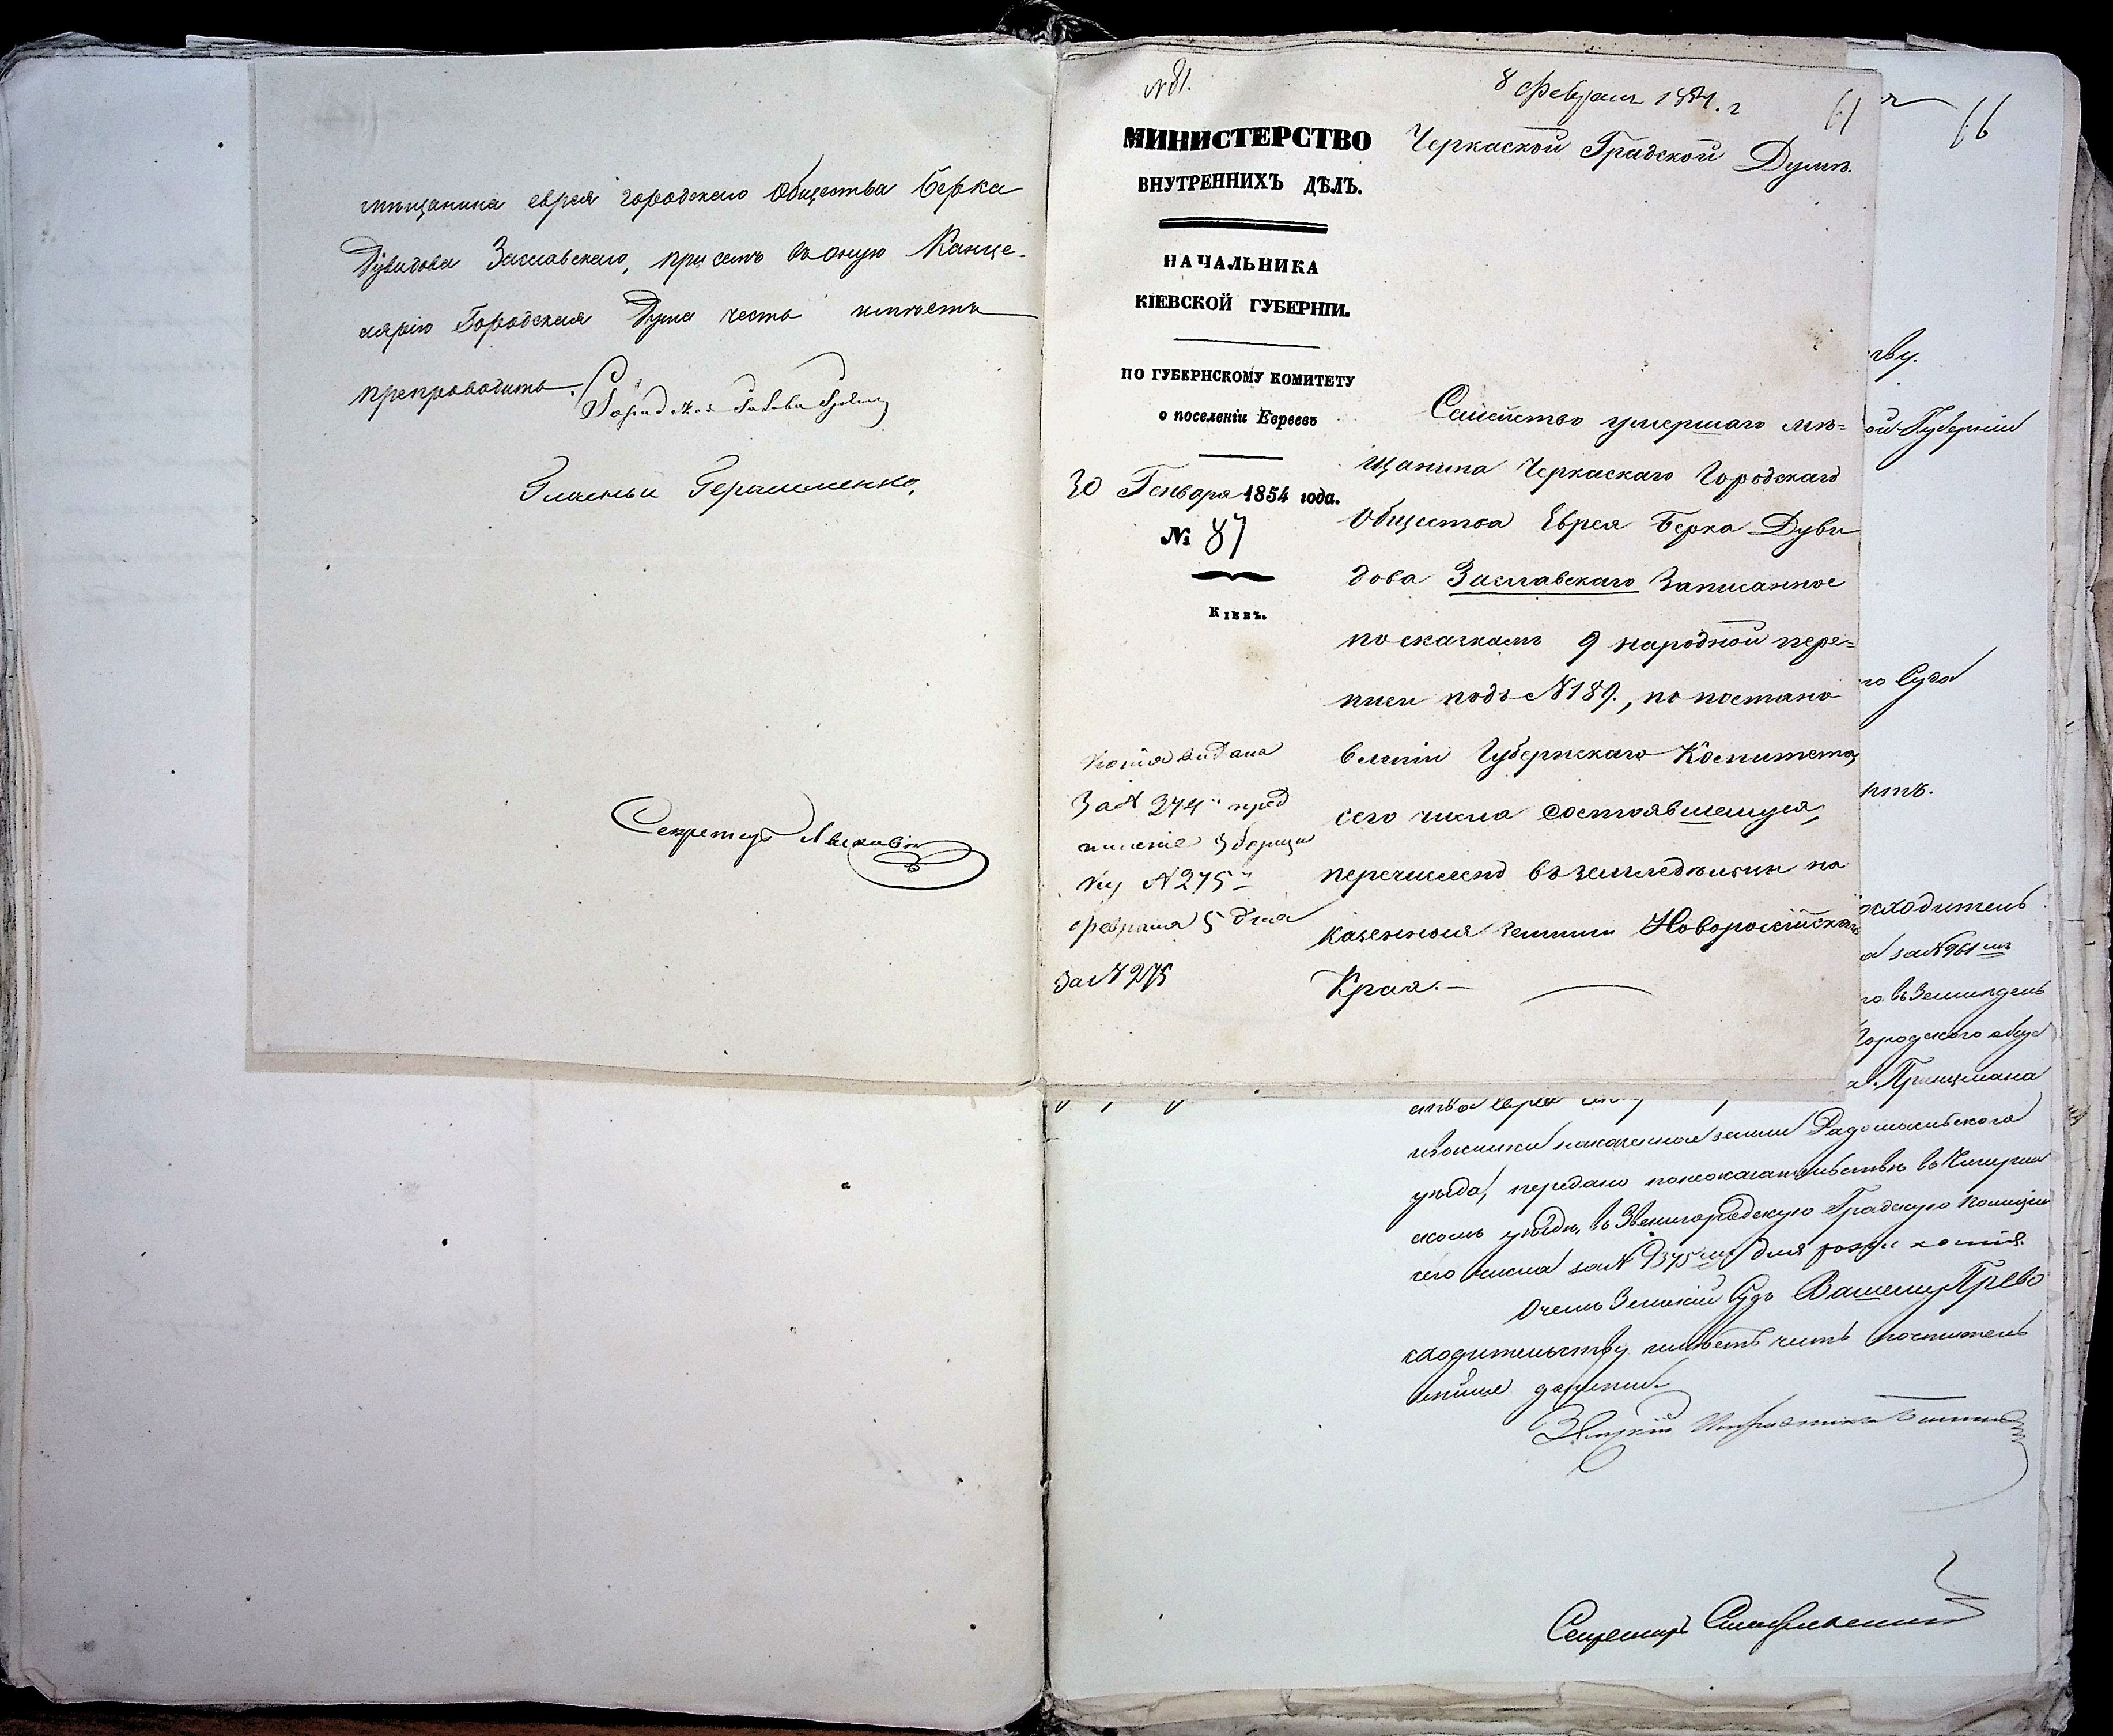 мѣщанина еврея городскаго Общества Берка
Дувидова Заславскаго, при семъ въ оную Канце-
лярію Городская Дума честь имѣетъ
препроводить.
Городской Голова
Гласный Герасименко,
Секретарь
№ 81.
8 Февраля 1854. г
61
66
МИНИСТЕРСТВО
ВНУТРЕННИХЪ ДѢЛЪ.
НАЧАЛЬНИКА
КІЕВСКОЙ ГУБЕРНІИ.
ПО ГУБЕРНСКОМУ КОМИТЕТУ
о поселеніи Евреевъ
30 Генваря 1854 года.
№ 87
Кіевъ.
Копія видана
За № 274
№ 275
февраля 5 дня
за № 275
Черкаской Градской Думѣ.
Семейство умершаго мѣ=
щанина Черкаскаго Городскаго
Общества Еврея Берка Дуви
дова Заславскаго Записанное
по сказкамъ 9 народной пере=
писи подъ № 189., по постано
вленію Губернскаго Комитета,
сего числа состоявшемуся,
перечислено въ земледѣльцы на
казенныя земли Новороссійскаго
Края.—
ву.
ой Губерніи
го Суда
ртъ.
сходитель
а за № 961
го въ Земледѣль
Городского общ
а Принцмана
ства еврея
казенные земли Радомысльского
уѣзда, передано
скомъ уѣздѣ, въ Звенигородскую Градскую Полицію
сего числа за № 9375 для
О чемъ Земскій Судъ Вашему Прево
сходительству имѣетъ честь почтитель
нѣйше донести.
Земскій Исправникъ
Секретарь